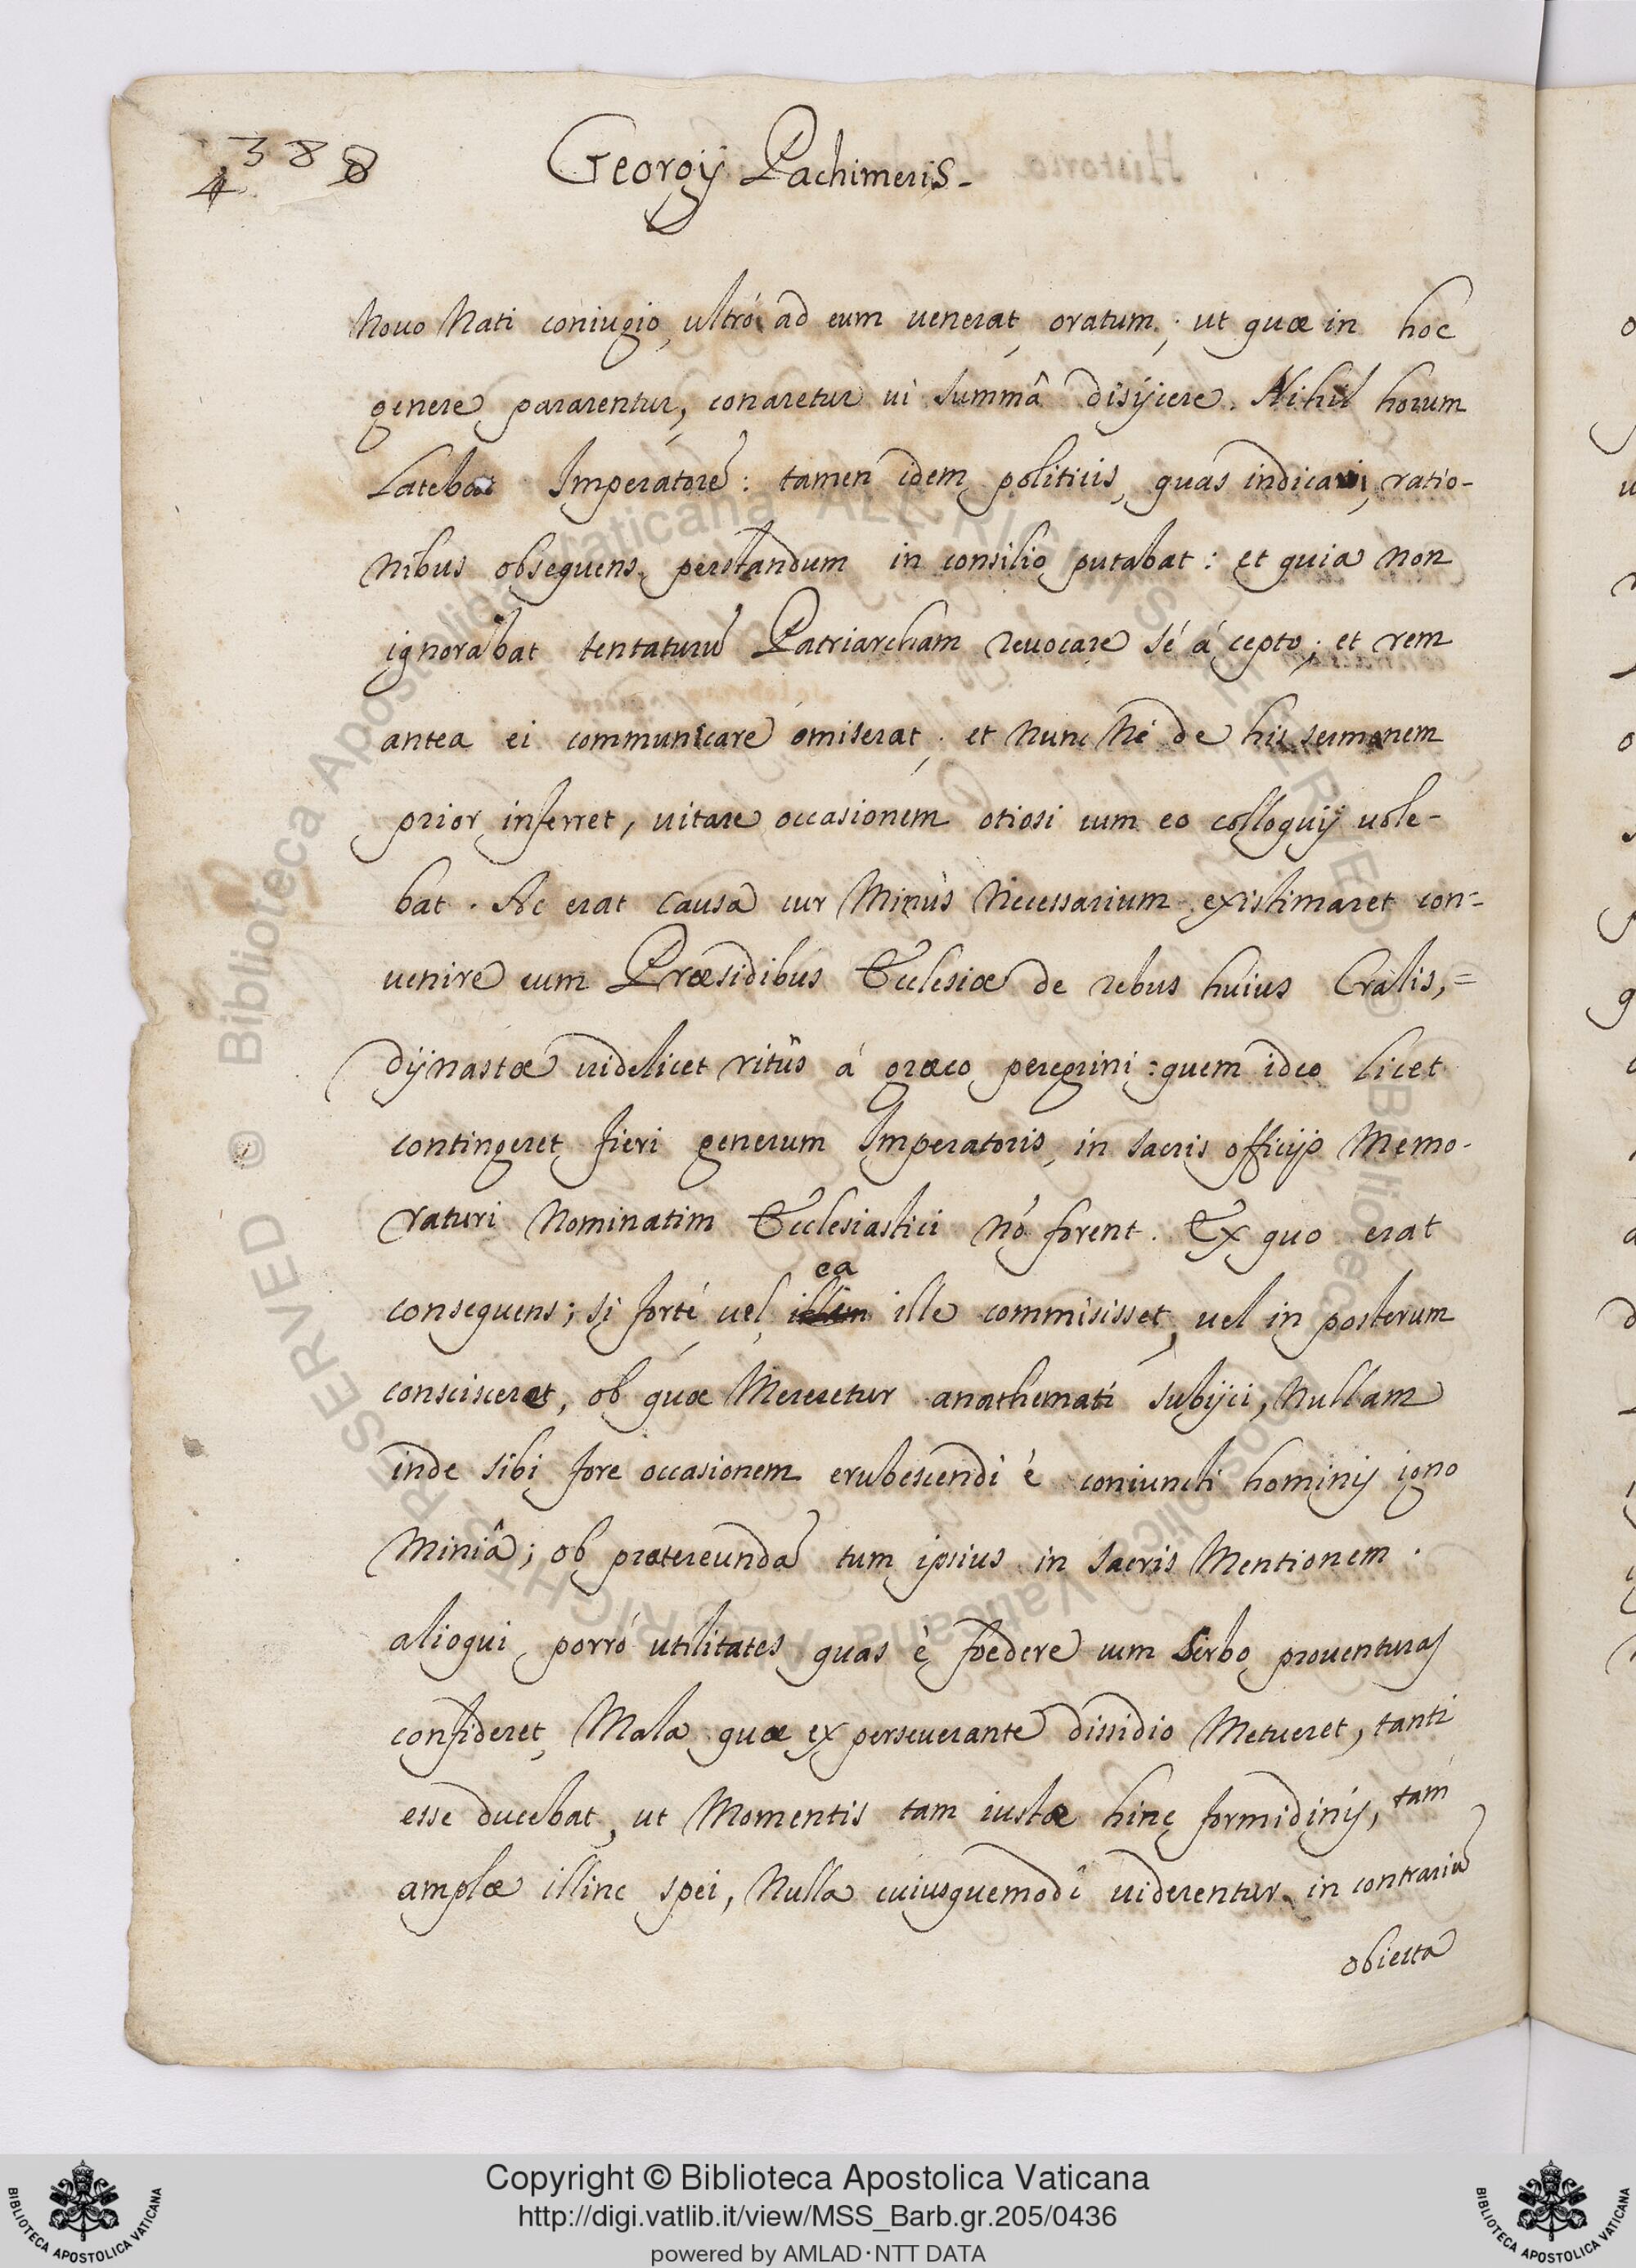 388
4
Georgij Pachimeris.
Nouo Nati coniugio, ultró ad eum uenerat, oratum; ut quæ in hoc
genere pararentur, conaretur ui summâ disijcere. Nihil horum
Latebat Imperatorē: tamen idem politicis, quas indicaui, ratio-
nibus obsequens, perstandum in consilio putabat: et quia non
ignorabat tentaturū Patriarcham reuocare sé á cepto; et rem
antea ei communicare omiserat, et nunc né de his sermonem
prior inferret, uitare occasionem otiosi cum eo colloquij uole-
bat. Ac erat causa cur Minùs Necessarium existimaret con=
uenire cum Præsidibus Ecclesiæ de rebus huius Cralis,=
dijnastæ uidelicet ritûs á græco peregrini: quem ideo licet
contingeret fieri generum Imperatoris, in sacris officijs Memo-
raturi Nominatim Ecclesiastici nō forent. Ex quo erat
ea
consequens; si forté uel illum ille commisisset, uel in posterum
conscisceret, ob quæ Mereretur anathemati subijci, Nullam
inde sibi fore occasionem erubescendi é coniuncti hominis igno
Miniâ; ob prætereundā tum ipsius in sacris Mentionem.
alioqui porró utilitates quas è fœdere cum Serbo prouenturas
confideret, Mala quæ ex perseuerante dissidio Metueret, tanti
esse ducebat, ut Momentis tam iustæ hinc formidinis, tam
amplæ illinc spei, Nulla cuiusquemodi uiderentur in contrariū
obiecta
Copyright © Biblioteca Apostolica Vaticana
http://digi.vatlib.it/view/MSS_Barb.gr.205/0436
powered by AMLAD·NTT DATA
BIBLIOTECA APOSTOLICA VATICANA
BIBLIOTECA APOSTOLICA VATICANA